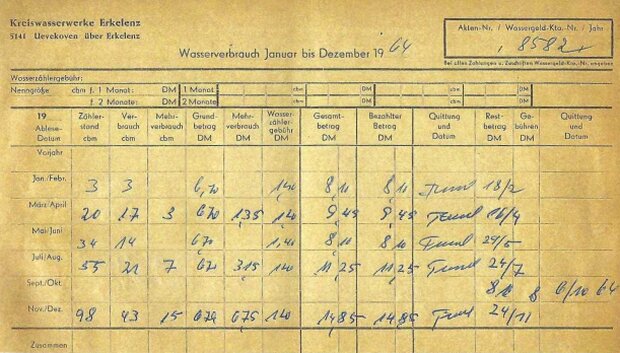 Kreiswasserwerke Erkelenz
5141 Uevekoven über Erkelenz
Akten-Nr. / Wassergeld-Kto.-Nr. / Jahr
8582
Bei allen Zahlungen u. Zuschriften Wassergeld-Kto.-Nr. angeben
Wasserverbrauch Januar bis Dezember 19 64
Wasserzählergebühr:
Nenngröße cbm f. 1 Monat: DM 1 Monat cbm DM cbm DM
f. 2 Monate: DM 2 Monate
19 Ablese-Datum Zählerstand cbm Verbrauch cbm Mehrverbrauch cbm Grundbetrag DM Mehrbetrag DM Wasserzählergebühr DM Gesamtbetrag DM Bezahlter Betrag DM Quittung und Datum Restbetrag DM Gebühren DM Quittung und Datum
Vorjahr
Jan./Febr. 3 3 6,70 1,40 8 10 8 10 18/2
März/April 20 17 3 670 135 1,40 9 45 9 45 16/4
Mai/Juni 34 14 670 1,40 8 10 8 10 29/5
Juli/Aug. 55 21 7 670 315 140 11 25 11 25 24/7
Sept./Okt. 8 10 8 6/10 64
Nov./Dez. 98 43 15 670 675 140 14 85 14 85 24/11
Zusammen